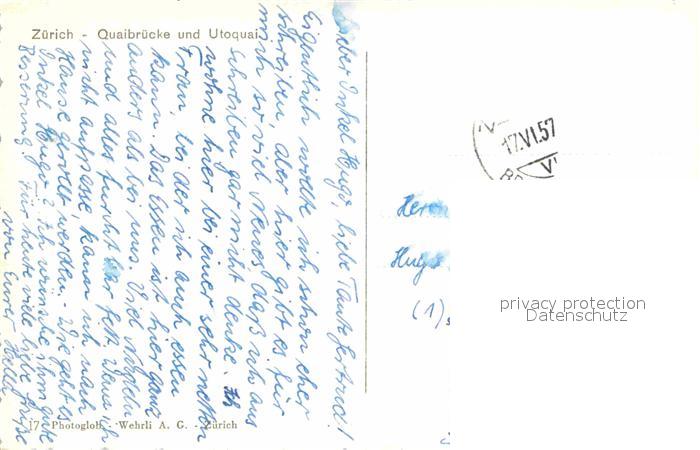 Zürich - Quaibrücke und Utoquai
Lieber Onkel Hugo, liebe Tante Gertrud!
Eigentlich wollte ich schon eher
schreiben, aber hier gibt es für
mich so viel Neues daß ich ans
Schreiben gar nicht denke. Ich
wohne hier bei einer sehr netten
Frau, bei der ich auch essen
kann. Das Essen ist hier ganz
anders als bei uns. Viel Nudeln
und alles furcht bar fett. Wenn ich
nicht aufpasse, kann ich nach
Hause gerollt werden. Wie geht es
Onkel Hugo? Ich wünsche ihm gute
Besserung! Für heute viele liebe Grüße
von Eurer
17.VI.57
Herrn
Hugo
(1)
privacy protection
Datenschutz
17 Photoglob - Wehrli A. G. - Zürich